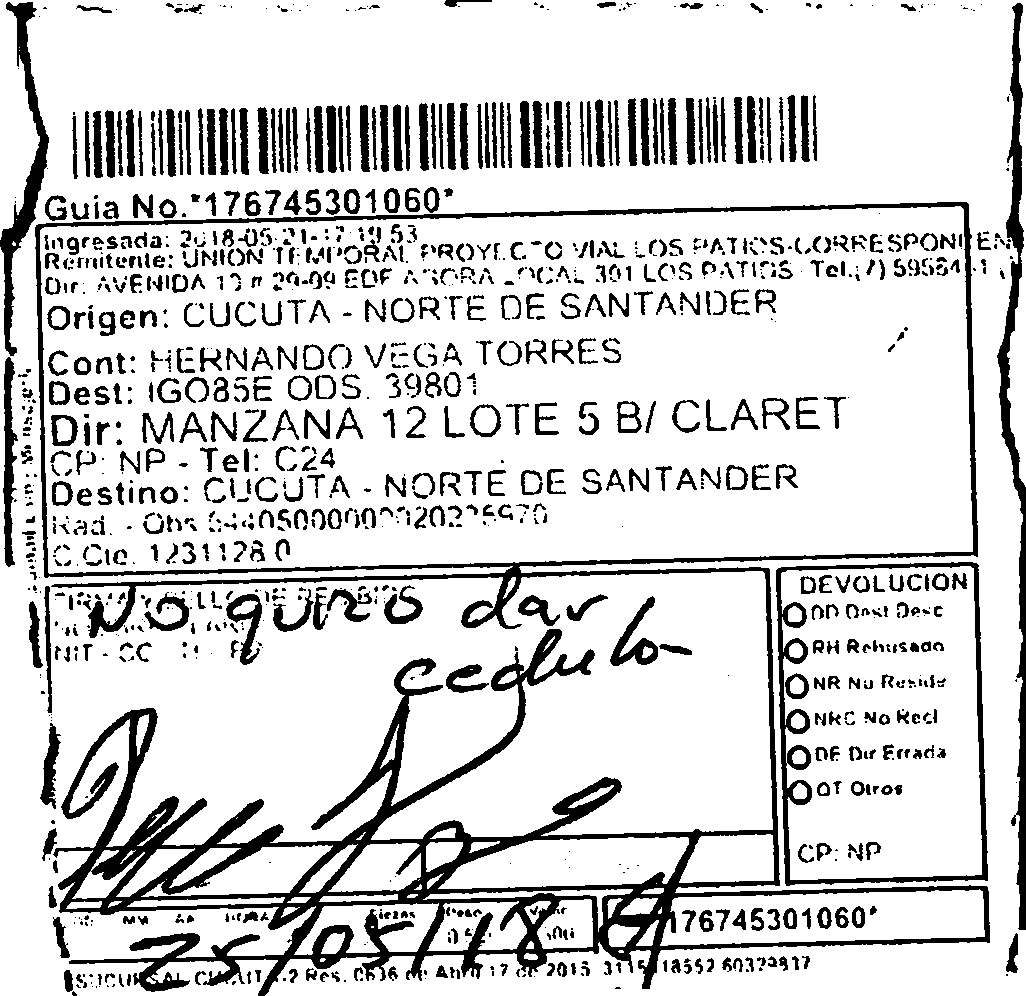 Guia No.*176745301060*
Ingresada: 2018-05-21-17:19:53
Remitente: UNION TEMPORAL PROYECTO VIAL LOS PATIOS-CORRESPONDEN
Dir: AVENIDA 10 # 29-09 EDF AGORA LOCAL 301 LOS PATIOS Tel.(7)
Origen: CUCUTA - NORTE DE SANTANDER
Cont: HERNANDO VEGA TORRES
Dest: IGO85E ODS. 39801
Dir: MANZANA 12 LOTE 5 B/ CLARET
CP: NP - Tel: C24
Destino: CUCUTA - NORTE DE SANTANDER
Rad. - Obs
C.Cte. 1231128 0
FIRMA Y SELLO DE RECIBIDO
No quizo dar
NIT - CC
cedula
DEVOLUCION
DD Dest Desc
RH Rehusado
NR No Reside
NRC No Recl
DE Dir Errada
OT Otros
CP: NP
MM AA HORA Piezas Peso Valor
25/05/18
176745301060*
SUCURSAL CUCUTA-2 Res. 0636 de Abril 17 de 2015